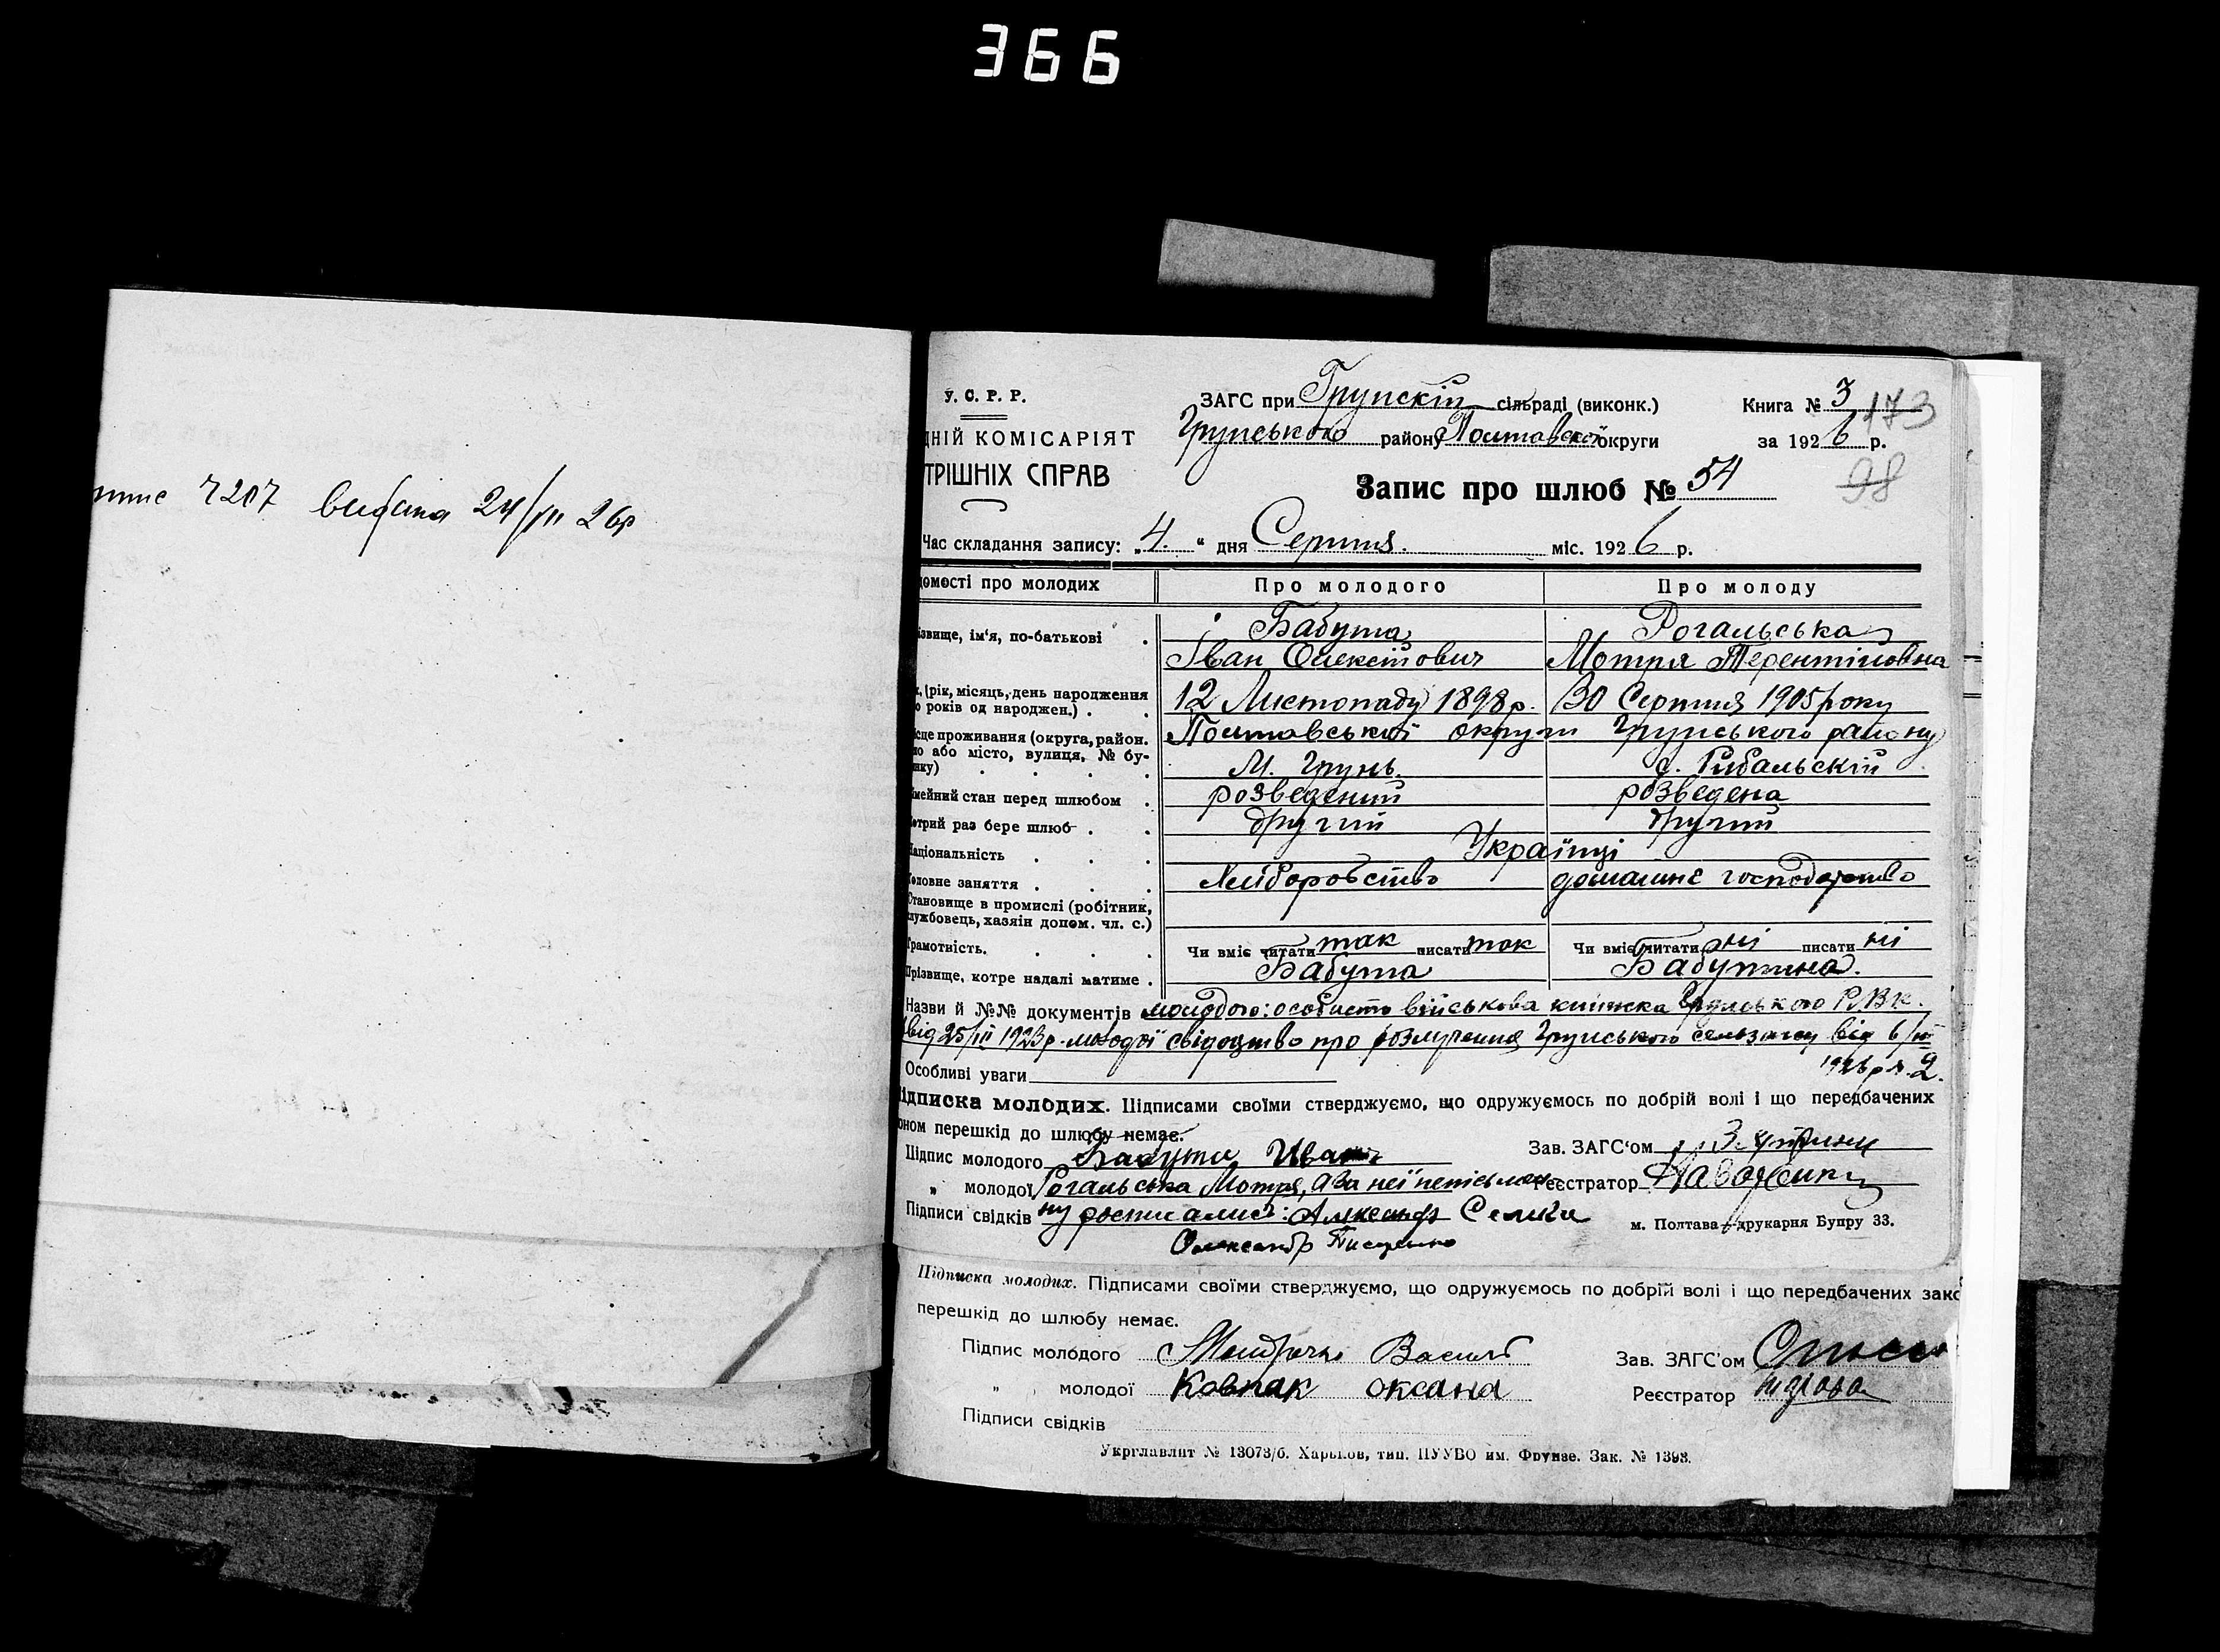 366
7207 видана 24/VII 26р
У. С. Р. Р.
ДНІЙ КОМІСАРІЯТ
ТРІШНІХ СПРАВ
ЗАГС при Грунскій сільраді (виконк.)
Грунського району Полтавської округи
Книга № 3
173
за 1926 р.
98
Запис про шлюб № 54
Час складання запису: „4." дня Серпня. міс. 1926 р.
домості про молодих Про молодого Про молоду
ізвище, ім'я, по-батькові . Бабута Рогальська
Іван Олексійович Мотря Терентіївна
(рік, місяць, день народження 12 Листопаду 1898 р. 30 Серпня 1905 року
років од народжен.) .
ісце проживання (округа, район, Полтавської округи Грунського району
ло або місто, вулиця, № бу-
нку) . . . . М. Грунь. с. Рибальскій
імейний стан перед шлюбом . розведений розведена
отрий раз бере шлюб . . другий другий
аціональність . . . Українці
оловне заняття . . . Хліборобство домашнє господарство
Становище в промислі (робітник,
лужбовець, хазяїн допом. чл. с.)
Грамотність. . . . Чи вміє читати так писати так Чи вміє читати ні писати ні
Прізвище, котре надалі матиме . Бабута Бабутина.
Назви й №№ документів молодого: особиста військова книжка Грунського Р.В.К.
від 25/III 1923 р. молодої свідоцтво про розлучення Грунського сельзагсу від 6/
1926 р. № 2.
Особливі уваги
ідписка молодих. Підписами своїми стверджуємо, що одружуємось по добрій волі і що передбачених
оном перешкід до шлюбу немає.
Підпис молодого Бабута Иван Зав. ЗАГС'ом
„ молодої Рогальська Мотря, а за неї неписьмен Реєстратор
Підписи свідків ну росписались: Александр м. Полтава—друкарня Бупру 33.
Олександр
Підписка молодих. Підписами своїми стверджуємо, що одружуємось по добрій волі і що передбачених зако
перешкід до шлюбу немає.
Підпис молодого Василь Зав. ЗАГС'ом
„ молодої Ковпак оксана Реєстратор
Підписи свідків
Укрглавліт № 13073/б. Харьков, тип. ПУУВО им. Фрунзе. Зак. № 1393.